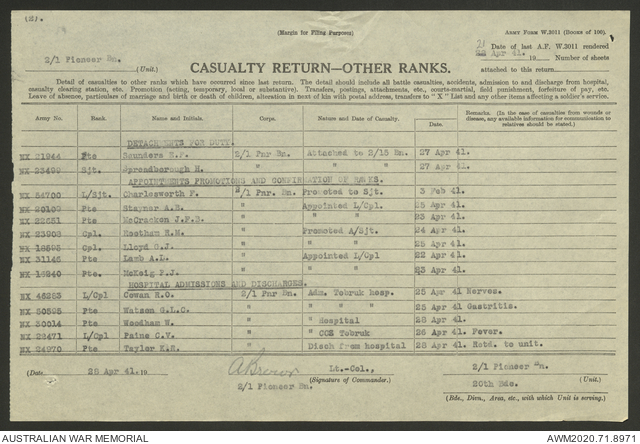 (Margin for Filing Purposes)
ARMY FORM W.2011 (BOOKS OF 100).
21
Date of last A.F. W.2011 rendered
Apr 41. 19
Number of sheets
attached to this return
2/1 Pioneer Bn. (Unit.)
CASUALTY RETURN—OTHER RANKS.
Detail of casualties to other ranks which have occurred since last return. The detail should include all battle casualties, accidents, admission to and discharge from hospital,
casualty clearing station, etc. Promotion (acting, temporary, local or substantive). Transfers, postings, attachments, etc., courts-martial, field punishment, forfeiture of pay, etc.
Leave of absence, particulars of marriage and birth or death of children, alteration in next of kin with postal address, transfers to "X" List and any other items affecting a soldier's service.
Army No. Rank Name and Initials. Corps. Nature and Date of Casualty. Date. Remarks. (In the case of casualties from wounds or disease, any available information for communication to relatives should be stated.)
DETACHMENTS FOR DUTY.
NX 21944 Pte Saunders E.F. 2/1 Pnr Bn. Attached to 2/15 Bn. 27 Apr 41.
NX 23499 Sjt. Spreadborough H. " " 27 Apr 41.
APPOINTMENTS PROMOTIONS AND CONFIRMATION OF RANKS.
NX 54700 L/Sjt. Charlesworth F. 2/1 Pnr. Bn. Promoted to Sjt. 3 Feb 41.
NX 20109 Pte Stayner A.E. " Appointed L/Cpl. 25 Apr 41.
NX 22651 Pte McCracken J.F.B. " " " 23 Apr 41.
NX 23908 Cpl. Keetham R.M. " Promoted A/Sjt. 24 Apr 41.
NX 18595 Cpl. Lloyd G.J. " " " 25 Apr 41.
NX 31146 Pte Lamb A.L. " Appointed L/Cpl 22 Apr 41.
NX 18240 Pte. McKeig P.J. " " " 23 Apr 41.
HOSPITAL ADMISSIONS AND DISCHARGES.
NX 46283 L/Cpl Cowan R.C. 2/1 Pnr Bn. Adm. Tobruk hosp. 25 Apr 41. Nerves.
NX 50595 Pte Watson G.L.C. " " " " 25 Apr 41. Gastritis.
NX 30014 Pte Woodham W. " " Hospital 28 Apr 41.
NX 22471 L/Cpl Paine C.V. " " CCS Tobruk 26 Apr 41. Fever.
NX 24970 Pte Taylor K.R. " Disch from hospital 28 Apr 41. Retd. to unit.
(Date) 28 Apr 41. 19
A Brown Lt.-Col.,
(Signature of Commander.)
2/1 Pioneer Bn.
2/1 Pioneer Bn. (Unit.)
20th Bde.
(Bde., Divn., Area, etc., with which Unit is serving.)
AUSTRALIAN WAR MEMORIAL
AWM2020.71.8971